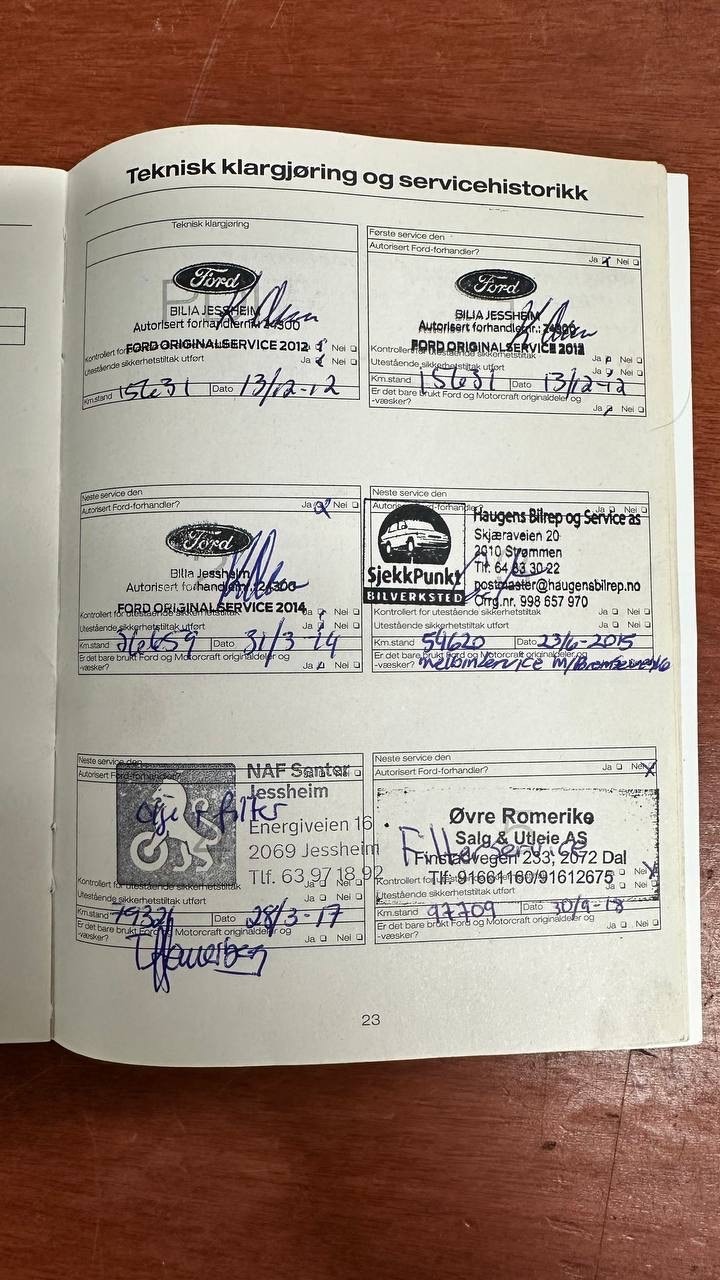 Teknisk klargjøring og servicehistorikk
Teknisk klargjøring
Ford
BILIA JESSHEIM
Autorisert forhandlernr: 24300
FORD ORIGINALSERVICE 2012
Kontrollert for Ja Nei
Utestående sikkerhetstiltak utført Ja Nei
Km.stand 15631 Dato 13/12-12
Første service den
Autorisert Ford-forhandler? Ja Nei
Ford
BILIA JESSHEIM
Autorisert forhandlernr.: 24300
FORD ORIGINALSERVICE 2012
Kontrollert for utestående sikkerhetstiltak Ja Nei
Utestående sikkerhetstiltak utført Ja Nei
Km.stand 15631 Dato 13/12-12
Er det bare brukt Ford og Motorcraft originaldeler og
-væsker? Ja Nei
Neste service den
Autorisert Ford-forhandler? Ja Nei
Ford
Bilia Jessheim
Autorisert forhandlernr.: 24300
FORD ORIGINALSERVICE 2014
Kontrollert for utestående sikkerhetstiltak Ja Nei
Utestående sikkerhetstiltak utført Ja Nei
Km.stand 26659 Dato 31/3-14
Er det bare brukt Ford og Motorcraft originaldeler og
-væsker? Ja Nei
Neste service den
Autorisert Ford-forhandler? Ja Nei
SjekkPunkt
BILVERKSTED
Haugens Bilrep og Service as
Skjæraveien 20
2010 Strømmen
Tlf. 64 83 30 22
postmaster@haugensbilrep.no
Org.nr. 998 657 970
Kontrollert for utestående sikkerhetstiltak Ja Nei
Utestående sikkerhetstiltak utført Ja Nei
Km.stand 54620 Dato 23/6-2015
Er det bare brukt Ford og Motorcraft originaldeler og
-væsker? mellomservice m/
Neste service den
Autorisert Ford-forhandler? Ja Nei
NAF Senter
Jessheim
Energiveien 16
2069 Jessheim
Tlf. 63 97 18 92
olje + filter
Kontrollert for utestående sikkerhetstiltak Ja Nei
Utestående sikkerhetstiltak utført Ja Nei
Km.stand 79326 Dato 28/3-17
Er det bare brukt Ford og Motorcraft originaldeler og
-væsker? Ja Nei
Neste service den
Autorisert Ford-forhandler? Ja Nei
Øvre Romerike
Salg & Utleie AS
Finstadvegen 233, 2072 Dal
Tlf. 91661160/91612675
Filterservice
Kontrollert for utestående sikkerhetstiltak Ja Nei
Utestående sikkerhetstiltak utført Ja Nei
Km.stand 97709 Dato 30/9-18
Er det bare brukt Ford og Motorcraft originaldeler og
-væsker? Ja Nei
23